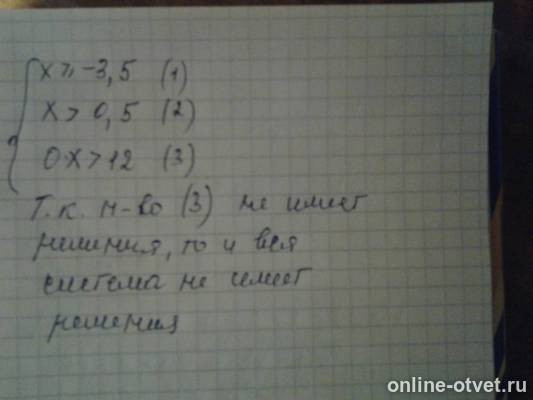 x ⩾ -3,5 (1)
x > 0,5 (2)
0·x > 12 (3)
Т.к. н-во (3) не имеет
решения, то и вся
система не имеет
решения
online-otvet.ru